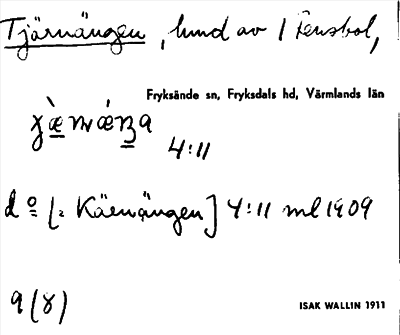 Tjärnängen, lund av 1 Fensbol,
Fryksände sn, Fryksdals hd, Värmlands län
4:11
do [: Käenängen] 4:11 ml 1909
9 (8)
ISAK WALLIN 1911